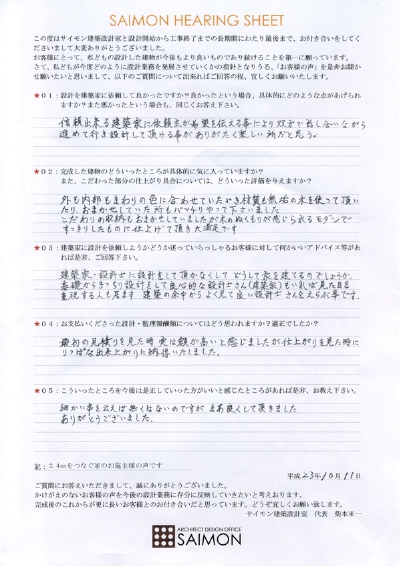 SAIMON HEARING SHEET
この度はサイモン建築設計室と設計開始から工事終了までの長期間にわたり最後まで、お付き合いをしてく
ださいまして大変ありがとうございました。
お客様にとって、私どもの設計した建物が今後もより良いものであり続けることを第一に願っています。
さて、私どもが今度どのように設計業務を発展させていくかの指針となりうる、「お客様の声」を是非お聞か
せ願いたいと思いまして、以下のご質問について出来ればご回答の程、宜しくお願いいたします。
★01:設計を建築家に依頼して良かったですか?良かったという場合、具体的にどのような点があげられ
ますか?また悪かったという場合も、同じくお答え下さい。
信頼出来る建築家に依頼主が希望を伝える事により双方で話し合いながら
進めて行き設計して頂ける事がありがたく楽しい所だと思う。
★02:完成した建物のどういったところが具体的に気に入っていますか?
また、こだわった部分の仕上がり具合については、どういった評価を与えますか?
外も内部もまわりの色に合わせていただき材質も無垢の木を使って頂い
たり、おまかせしていた所もバッチリやって下さいました
こだわりの収納もおまかせしていましたが木のぬくもりが感じられるモダンで
すっきりしたものに仕上げて頂き大満足です
★03:建築家に設計を依頼しようかどうか迷っていらっしゃるお客様に対して何かいいアドバイス等があ
れば是非、ご回答下さい。
建築家・設計士に設計をして頂かなくして どうして家を建てるのでしょうか
基礎からきっちり設計をして良心的な設計士さん(建築家)もいれば見た目を
重視する人も居ます 建築の余中からよく見て良い設計士さんをえらぶ事です。
★04:お支払いくださった設計・監理報酬額についてはどう思われますか?適正でしたか?
最初の見積りを見た時 実は額が高いと感じましたが仕上がりを見た時に
りっぱな出来上がりに納得いたしました。
★05:こういったところを今後は是正していった方がいいと感じたところがあれば是非、お教え下さい。
細かい事を云えば無くはないのですが まあ良くして頂きました
ありがとうございました。
記:2.4mをつなぐ家のお施主様の声です
平成23年10月11日
ご質問にお答えいただきまして、誠にありがとうございました。
かけがえのないお客様の声を今後の設計業務に存分に反映していきたいと考えております。
完成後のこれからが更に長いお客様とのお付き合いだと思っています。どうぞ宜しくお願い致します。
サイモン建築設計室 代表 柴本米一
ARCHITECT DESIGN OFFICE
SAIMON